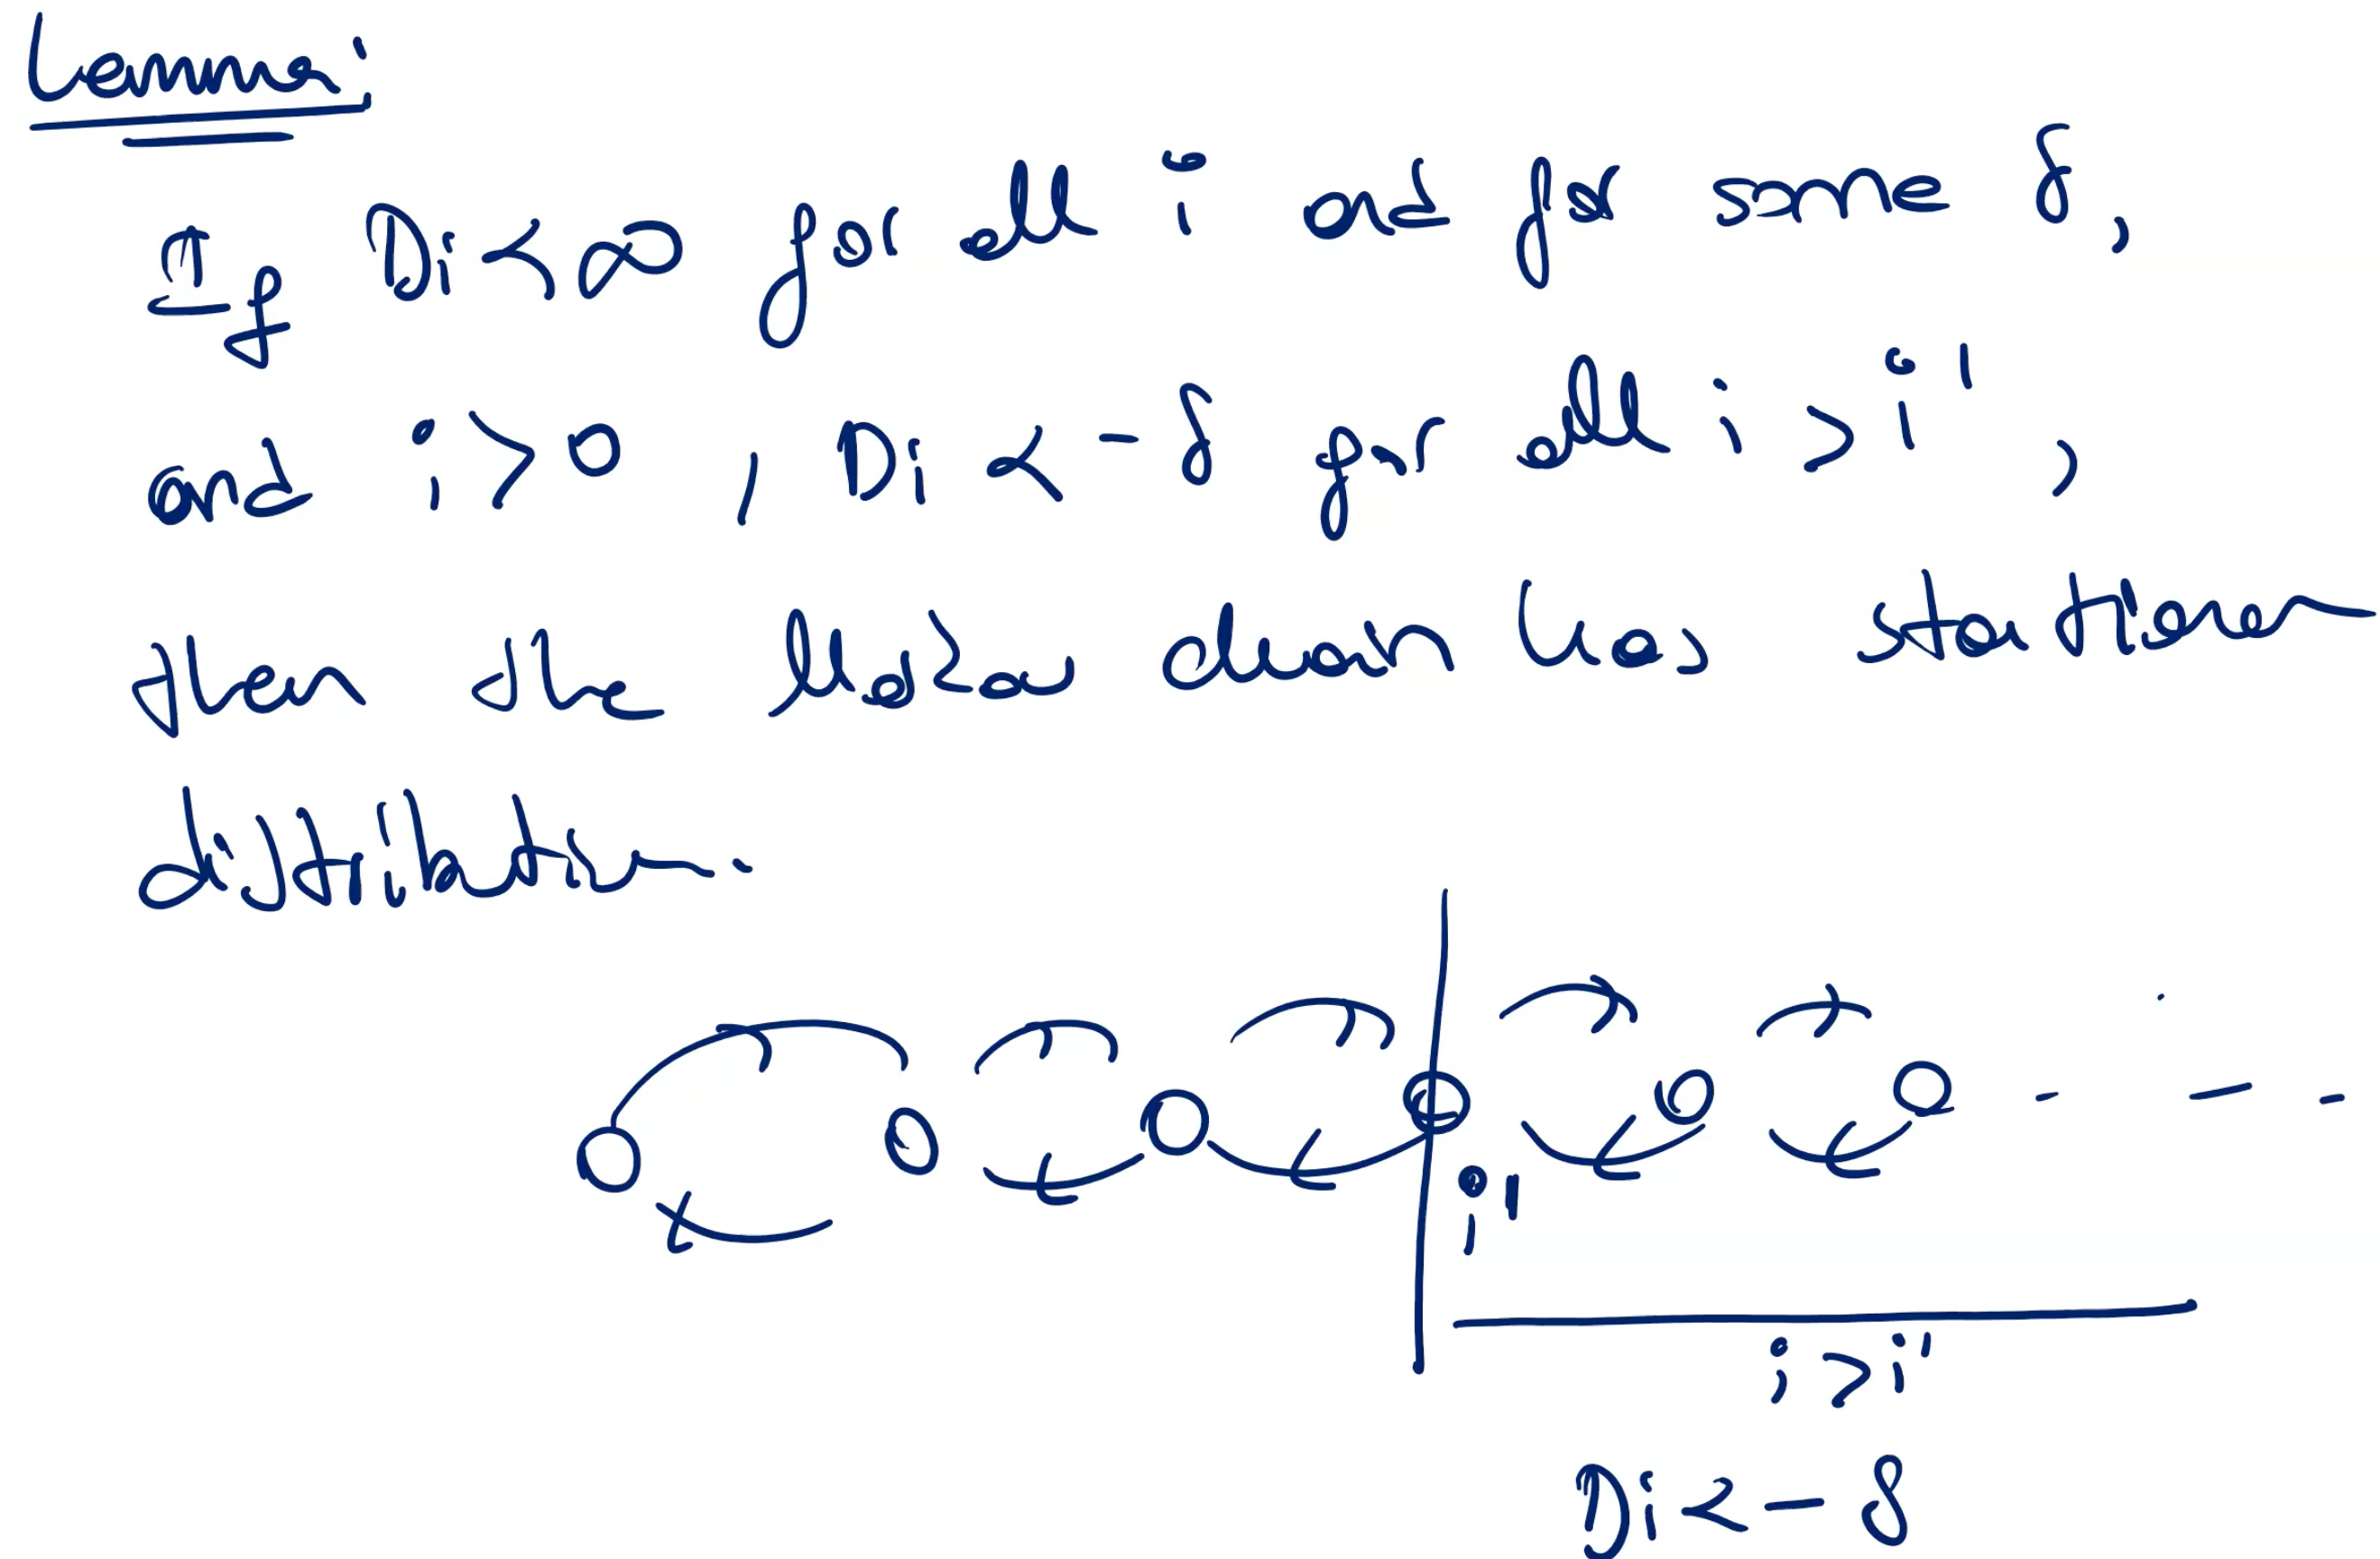 Lemma:
If Di < ∞ for all i and for some δ,
and i > 0 , Di < - δ for all i > i' ,
then the Markov chain has stationary
distribution.
i'
i > i'
Di < - δ